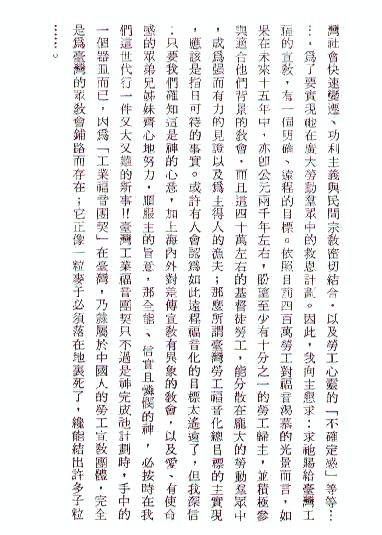 灣社會快速變遷、功利主義與民間宗教密切結合,以及勞工心靈的「不確定感」等等…
…,爲了要實現祂在廣大勞動羣眾中的救恩計劃。因此,我向主懇求:求祂賜給臺灣工
福的宣教,有一個明確、遠程的目標。依照目前四百萬勞工對福音渴慕的光景而言,如
果在未來十五年中,亦卽公元兩千年左右,盼望至少有十分之一的勞工歸主,並積極參
與適合他們背景的敎會,而且這四十萬左右的基督徒勞工,能分散在龐大的勞動羣眾中
,成爲强而有力的見證以及爲主得人的漁夫;那麼所謂臺灣勞工福音化總目標的主實現
,應該是指日可待的事實。或許有人會認爲如此遠程福音化的目標太遙遠了,但我深信
:只要我們確知這是神的心意,加上海內外對差傳宣敎有異象的敎會,以及愛、有使命
感的眾弟兄姊妹齊心地努力,順服主的旨意,那全能、信實且憐憫的神,必按時在我
們這世代行一件又大又難的新事!!臺灣工業福音團契只不過是神完成祂計劃時,手中的
一個器皿而已,因爲「工業福音團契」在臺灣,乃隸屬於中國人的勞工宣敎團體,完全
是爲臺灣的眾敎會鋪路而存在;它正像一粒麥子必須落在地裏死了,纔能結出許多子粒
……。